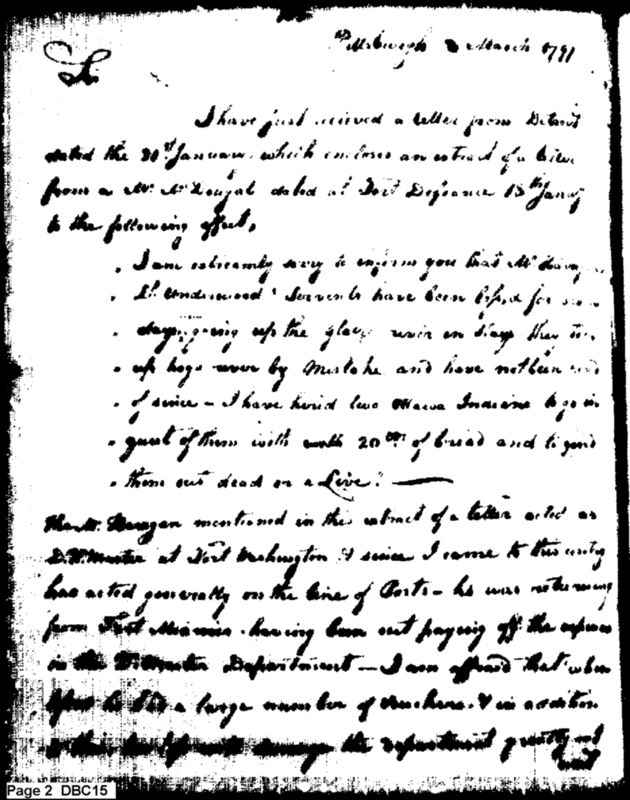 Pittsburgh 2 March 1791
Sir
I have just recieved a letter from Detroit
dated the 30th January, which encloses an extract of a letter
from a Mr. McDougal dated at Fort Defiance 15th Jany
to the following effect,
" I am extreamly sorry to inform you that Mr
" Lt. Underwood & Servents have been lost for
" days, going up the Glaze river in they
" up hogs river by Mistake and have not been
" of since – I have hired two Ottawa Indians to go in
" quest of them with 20 of bread and to
" them out dead or a Live." —
The Mr. Flanagan mentioned in the extract of a letter acted as
D. Qr. Master at Fort Washington & since I came to this
has acted generally on the line of Posts – he was returning
from Fort Miamis having been out paying off the expences
in the Qr. Master Department — I am affraid that when
lost he had a large number of Vouchers & in addition
to their the department greatly